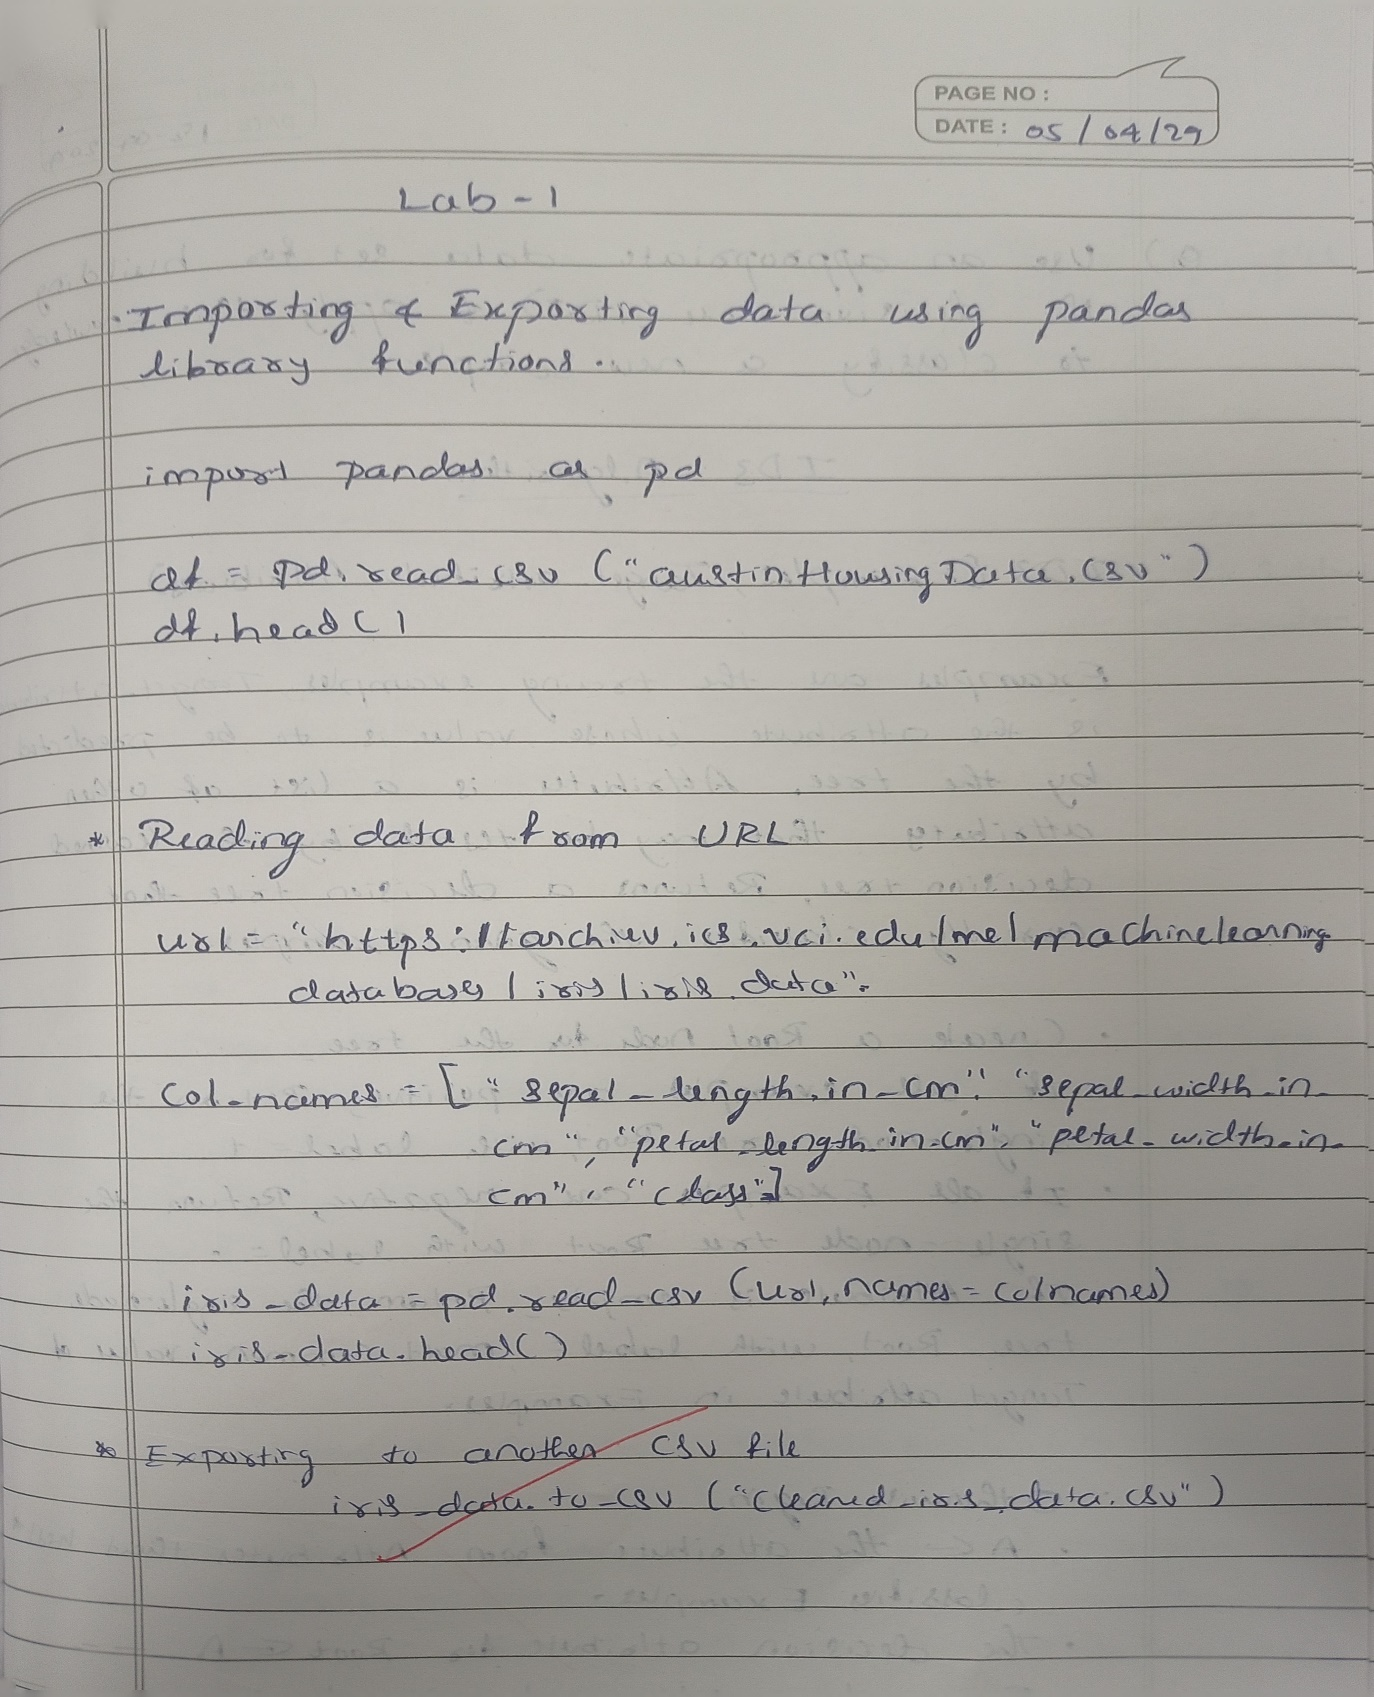 PAGE NO :
DATE : 05/04/29
Lab - 1
Importing & Exporting data using pandas
library functions.
import pandas as pd
df = pd.read_csv ("austinHousingData.csv")
df.head()
* Reading data from URL
url = "https://archiev.ics.uci.edu/me/machinelearning
databases/iris/iris.data"
col-names = ["sepal_length_in_cm", "sepal_width_in_
cm", "petal_length_in_cm", "petal_width_in_
cm", "class"]
iris_data = pd.read_csv (url, names = colnames)
iris_data.head()
* Exporting to another CSV file
iris_data.to_csv ("cleaned_iris_data.csv")